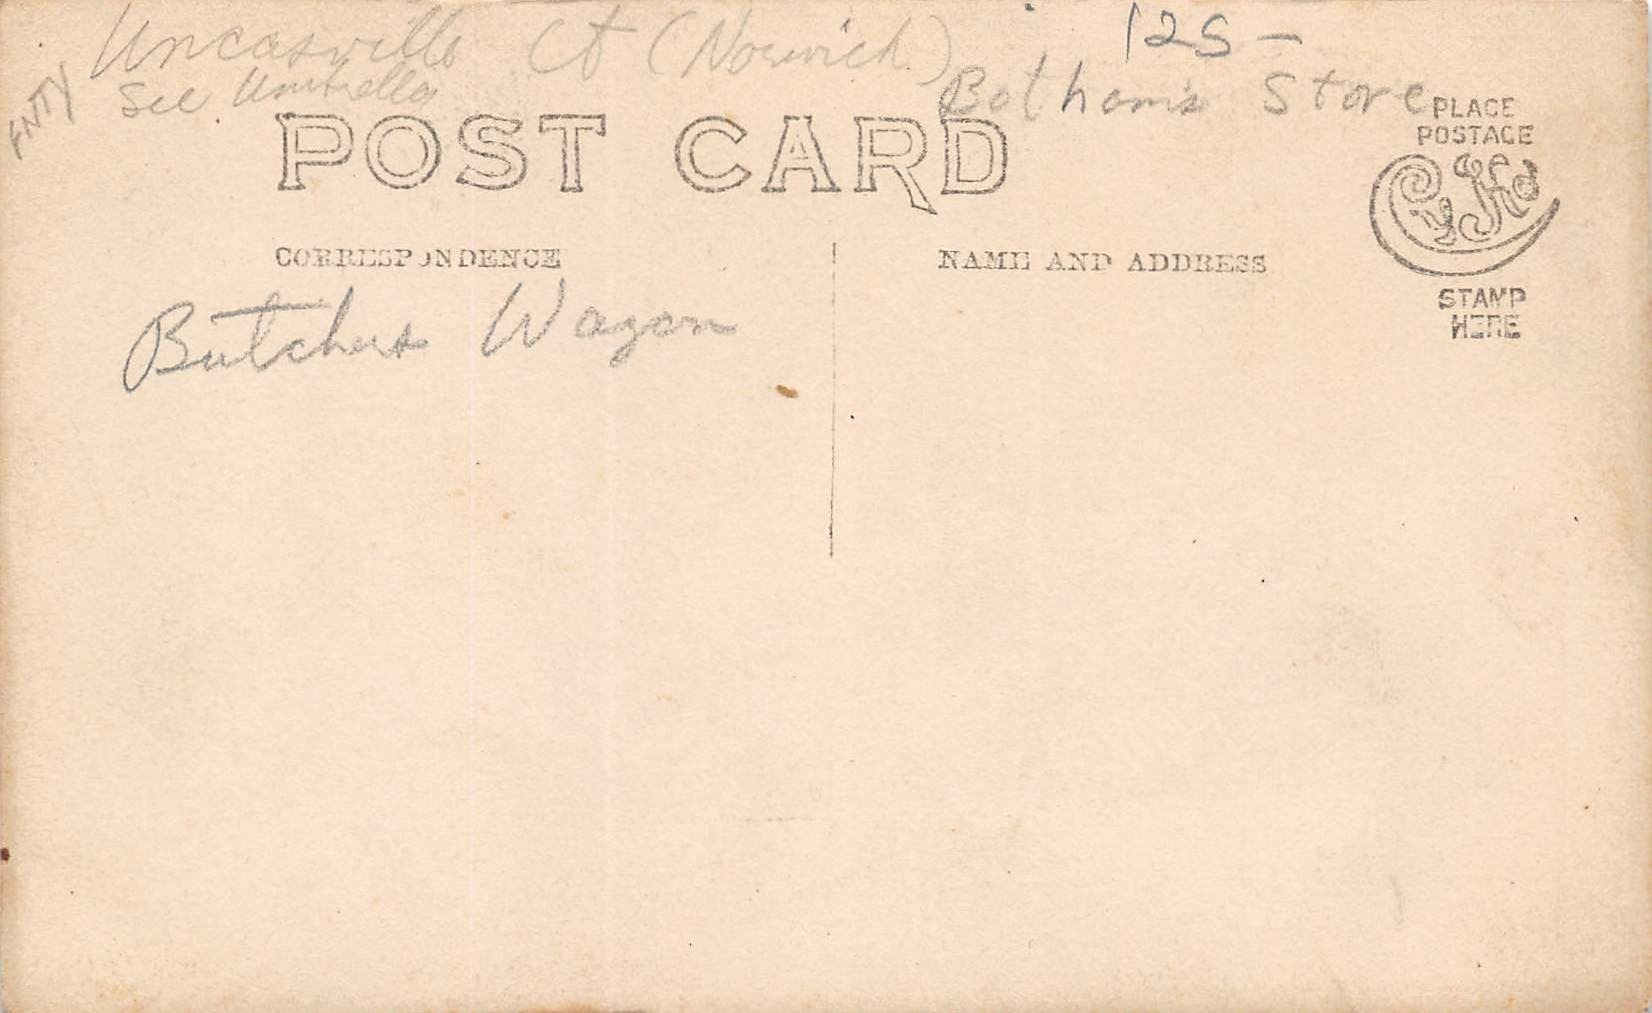 Uncasville Ct (Norwich) 125 -
See Umbrella
Botham's Store
POST CARD
PLACE
POSTAGE
CORRESPONDENCE
NAME AND ADDRESS
STAMP
HERE
Butchers Wagon